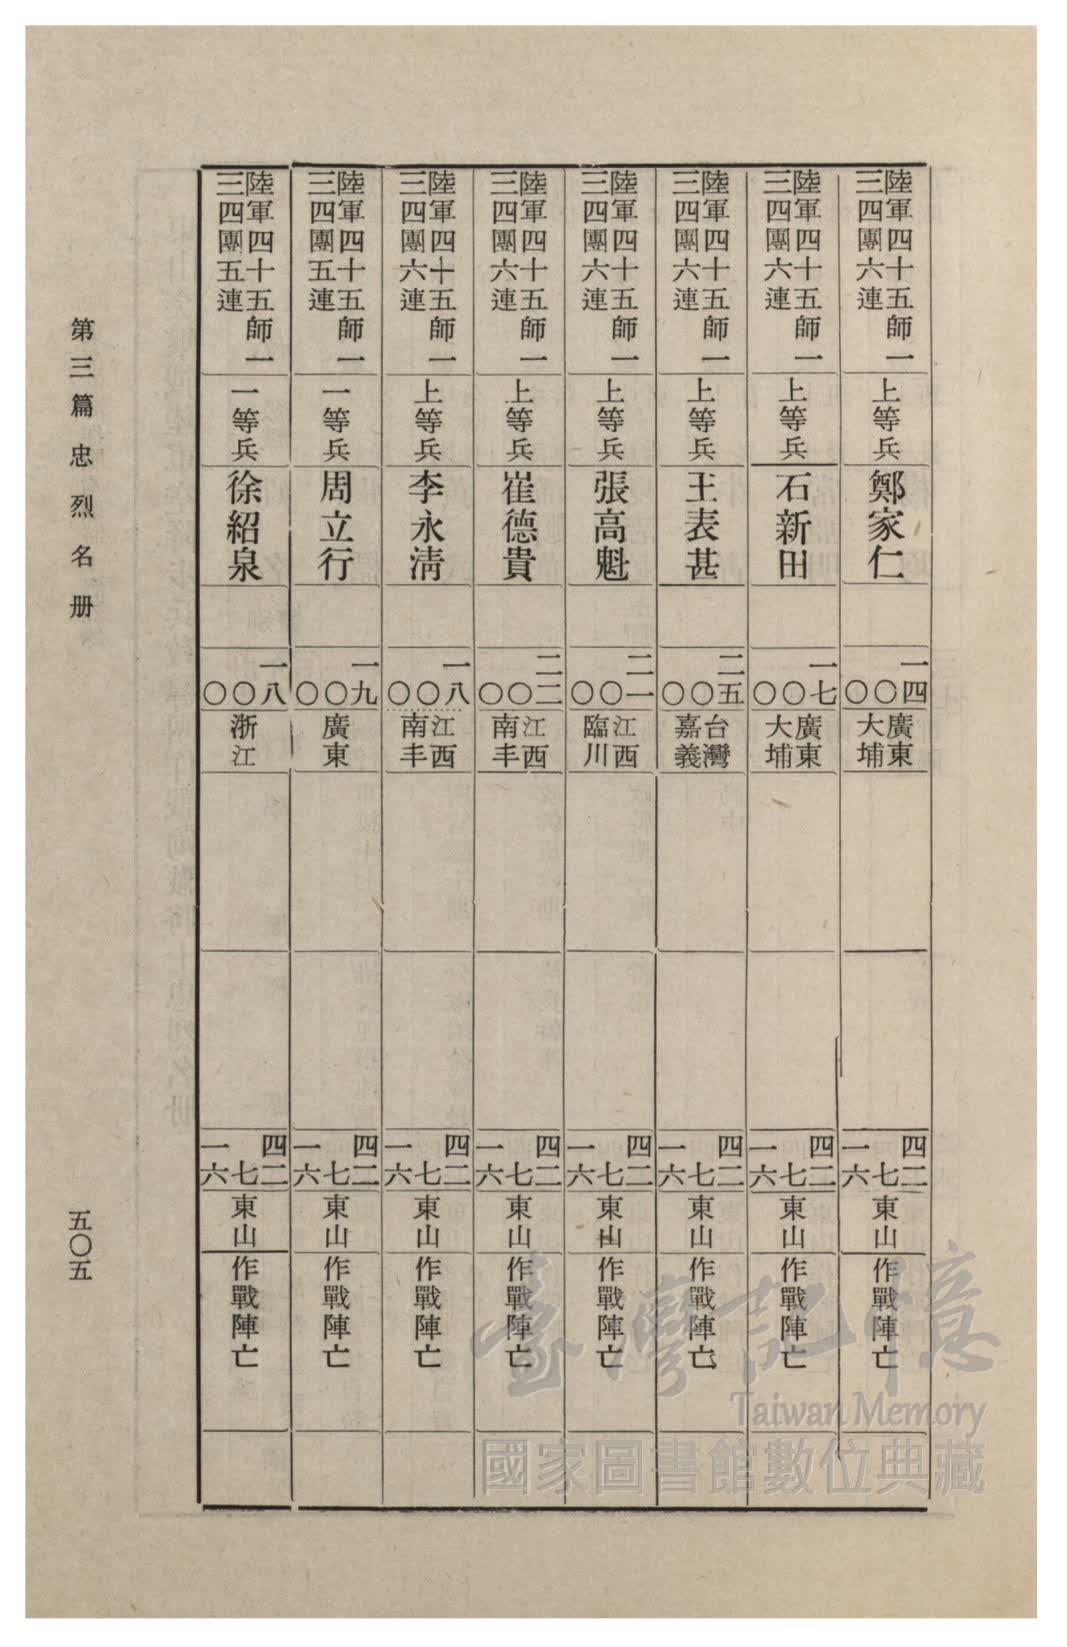 陸軍四十五師一
三四團六連
上等兵
鄭家仁
一四
〇
〇
廣東
大埔
四二
七
一六
東山
作戰陣亡
陸軍四十五師一
三四團六連
上等兵
石新田
一七
〇
〇
廣東
大埔
四二
七
一六
東山
作戰陣亡
陸軍四十五師一
三四團六連
上等兵
王表甚
二五
〇
〇
台灣
嘉義
四二
七
一六
東山
作戰陣亡
陸軍四十五師一
三四團六連
上等兵
張高魁
二一
〇
〇
江西
臨川
四二
七
一六
東山
作戰陣亡
陸軍四十五師一
三四團六連
上等兵
崔德貴
二二
〇
〇
江西
南丰
四二
七
一六
東山
作戰陣亡
陸軍四十五師一
三四團六連
上等兵
李永清
一八
〇
〇
江西
南丰
四二
七
一六
東山
作戰陣亡
陸軍四十五師一
三四團五連
一等兵
周立行
一九
〇
〇
廣東
四二
七
一六
東山
作戰陣亡
陸軍四十五師一
三四團五連
一等兵
徐紹泉
一八
〇
〇
浙江
四二
七
一六
東山
作戰陣亡
第三篇 忠烈名册
五〇五
臺灣記憶
Taiwan Memory
國家圖書館數位典藏